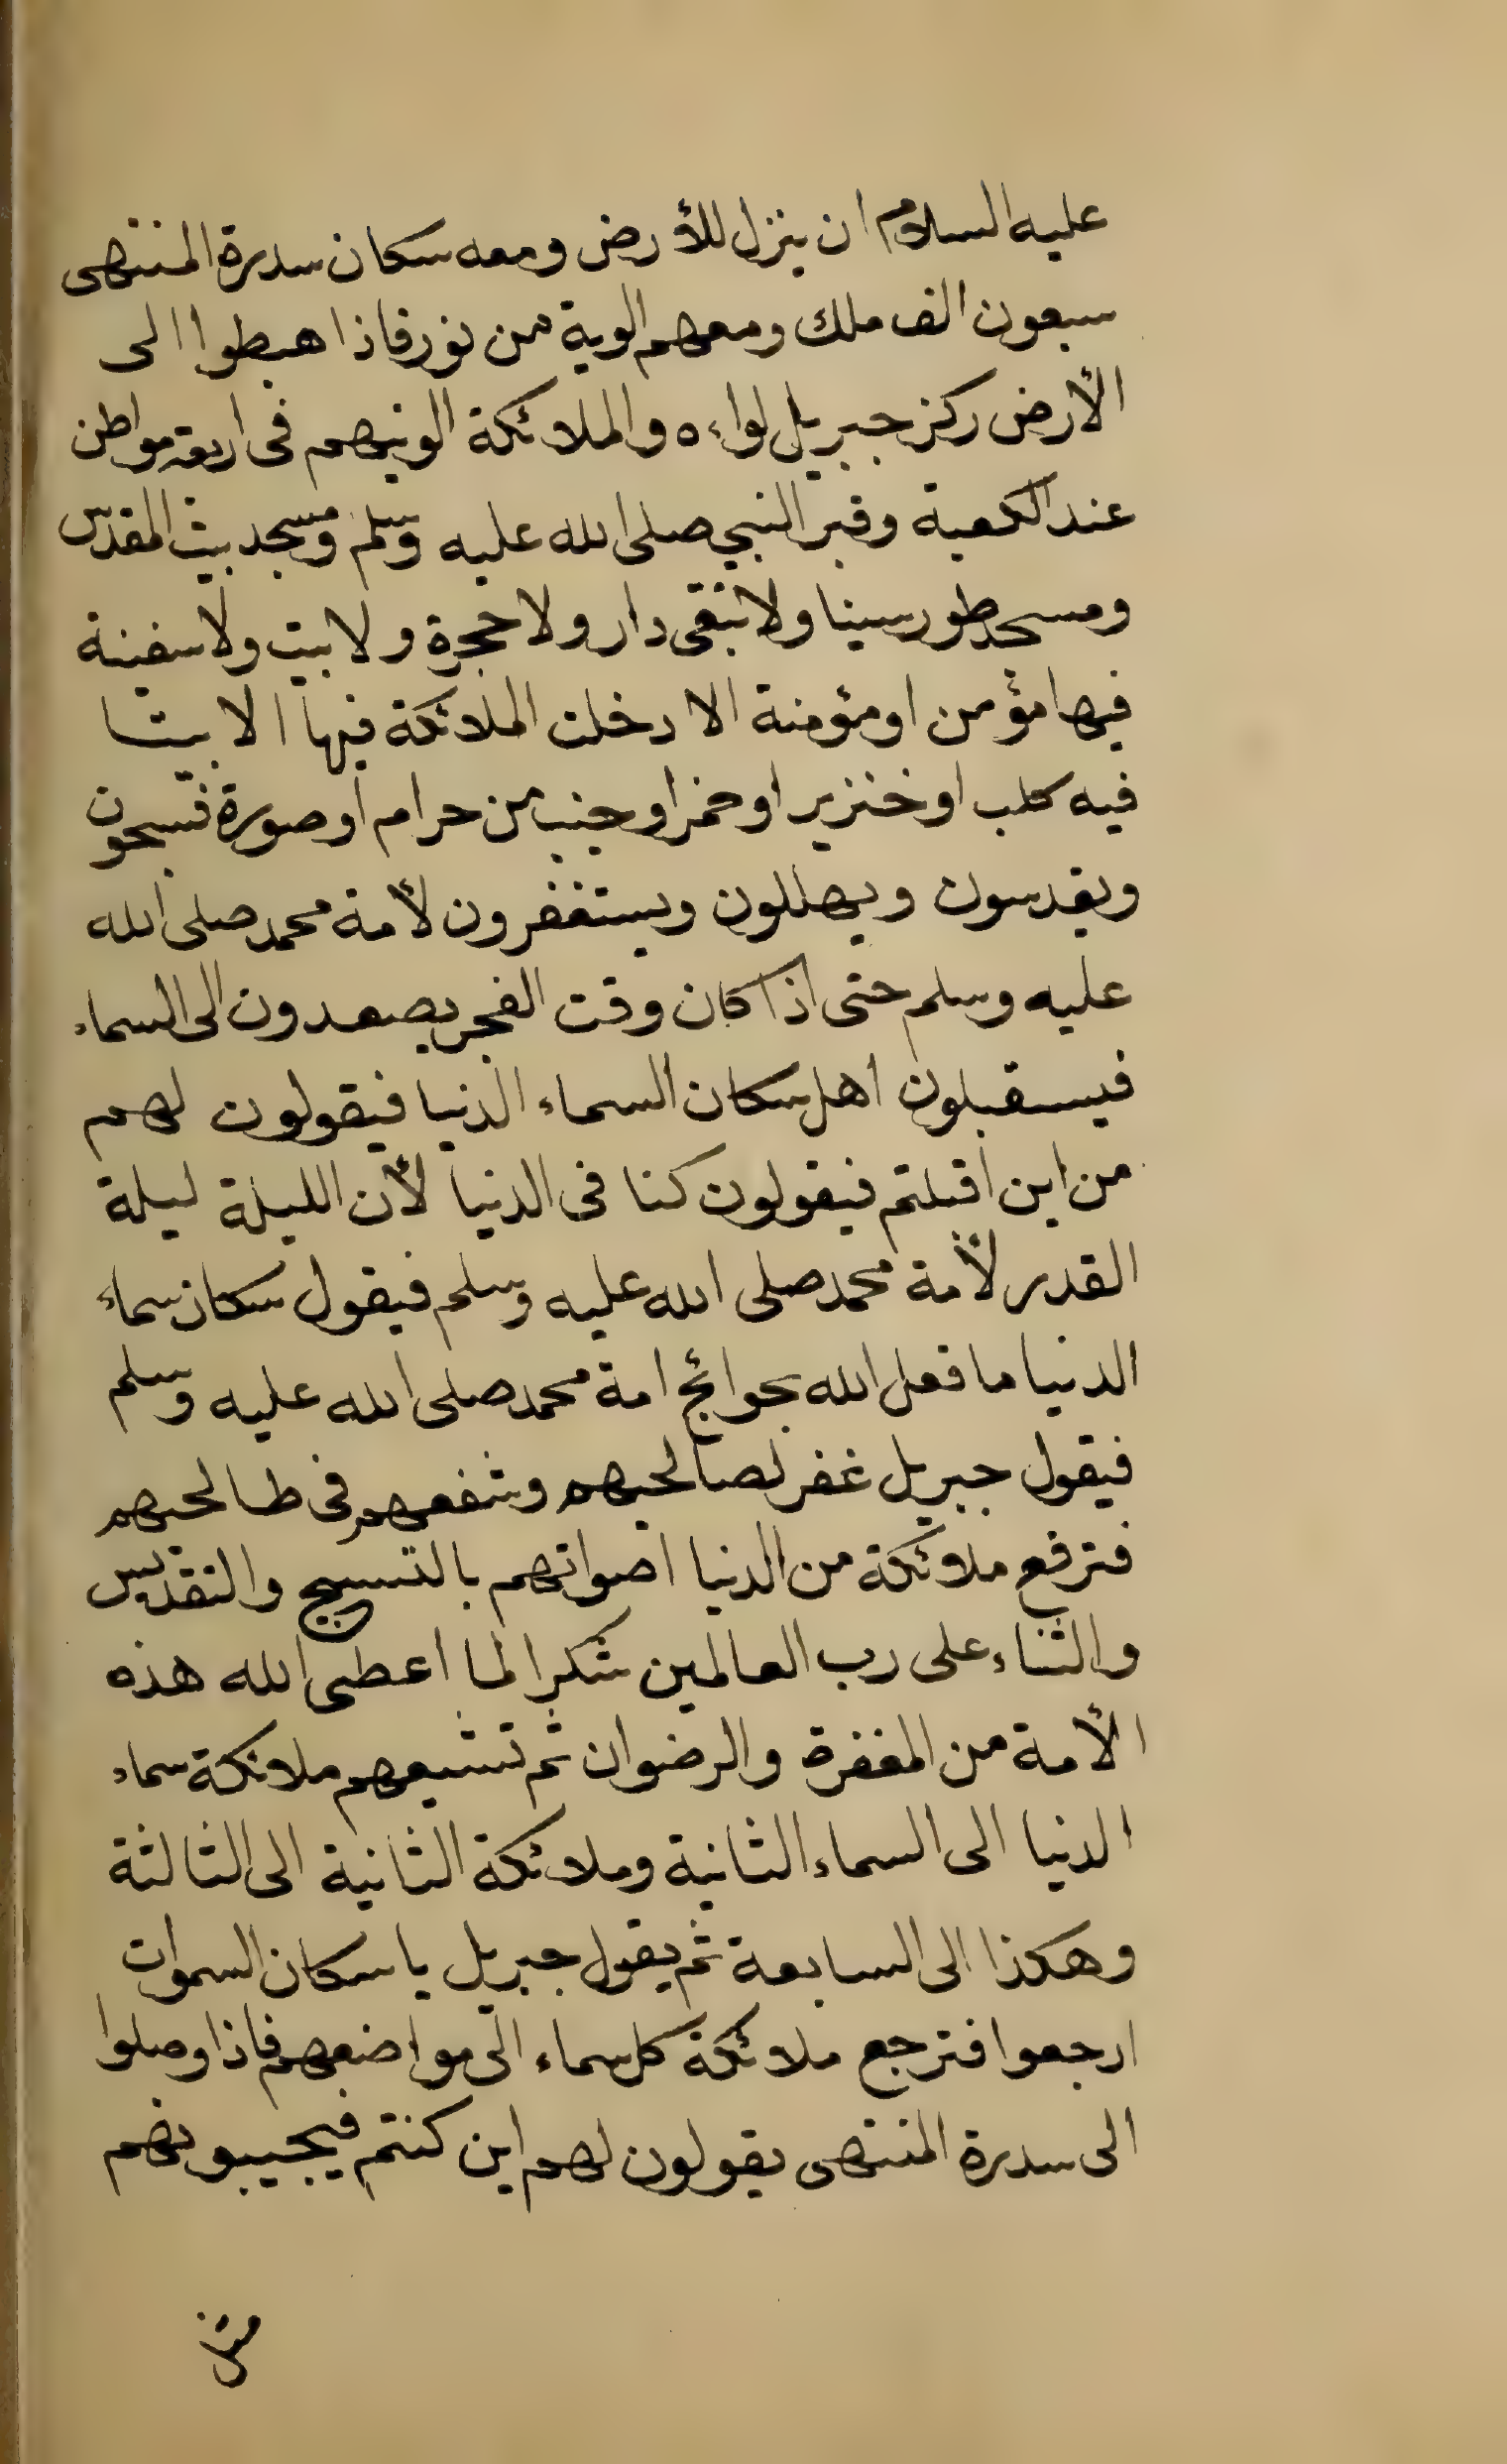 عليه السلام ان ينزل للأرض ومعه سكان سدرة المنتهى
سبعون الف ملك ومعهم الوية من نور فاذا هبطوا الى
الأرض ركز جبريل لواءه والملائكة الويتهم فى اربعة مواطن
عند الكعبة وقبر النبي صلى الله عليه وسلم ومسجد بيت المقدس
ومسجد طور سينا ولا تبقى دار ولا حجرة ولا بيت ولا سفينة
فيها مؤمن او مؤمنة الا دخلت الملائكة فيها الا بيتا
فيه كلب او خنزير او خمر او جنب من حرام او صورة فيسبحون
ويقدسون ويهللون ويستغفرون لأمة محمد صلى الله
عليه وسلم حتى اذا كان وقت الفجر يصعدون الى السماء
فيسقبلون اهل سكان السماء الدنيا فيقولون لهم
من اين اقبلتم فيقولون كنا فى الدنيا لأن الليلة ليلة
القدر لأمة محمد صلى الله عليه وسلم فيقول سكان سماء
الدنيا ما فعل الله بحوائج امة محمد صلى الله عليه وسلم
فيقول جبريل غفر لصالحيهم وشفعهم فى طالحيهم
فترفع ملائكة من الدنيا اصواتهم بالتسبيح والتقديس
والثناء على رب العالمين شكرا لما اعطى الله هذه
الأمة من المغفرة والرضوان ثم تشيعهم ملائكة سماء
الدنيا الى السماء الثانية وملائكة الثانية الى الثالثة
وهكذا الى السابعة ثم يقول جبريل يا سكان السموات
ارجعوا فترجع ملائكة كل سماء الى مواضعهم فاذا وصلوا
الى سدرة المنتهى يقولون لهم اين كنتم فيجيبونهم
مثل